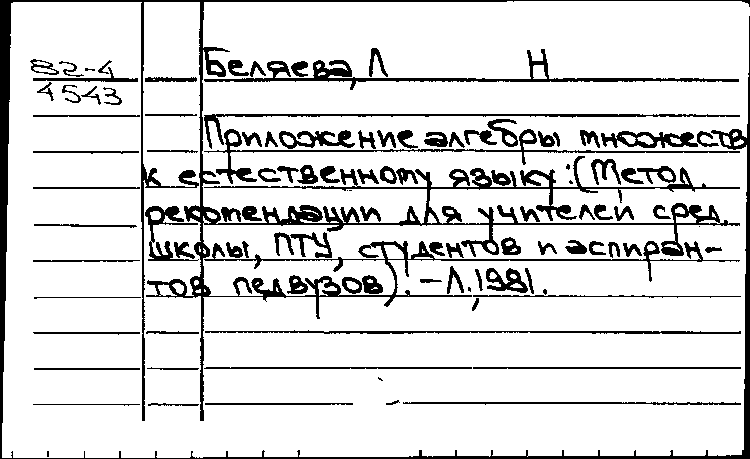 82-4 Беляева, Л Н
4543
Приложение алгебры множеств
к естественному языку: (Метод.
рекомендации для учителей сред.
школы, ПТУ, студентов и аспиран-
тов педвузов). – Л., 1981.